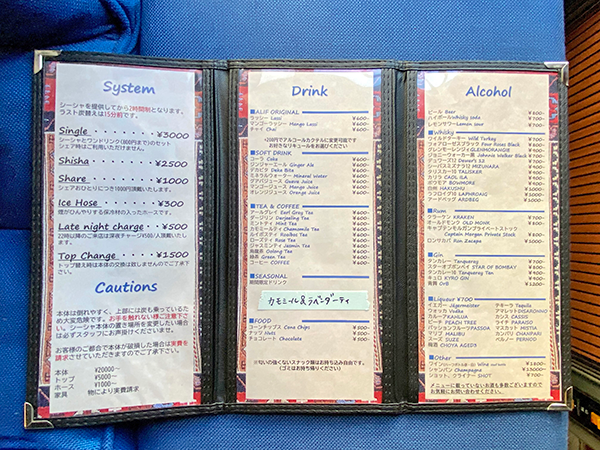 System
シーシャを提供してから2時間制となります。
ラスト炭替えは15分前です。
Single ・・・・・・・・・ ¥3000
シーシャとワンドリンク(800円まで)のセット
シェア時はご利用いただけません。
Shisha ・・・・・・・・・ ¥2500
Share ・・・・・・・・・ ¥1000
シェアおひとりにつき1000円頂戴いたします。
Ice Hose ・・・・・・・ ¥300
煙がひんやりする保冷材の入ったホースです。
Late night charge・・¥500
22時以降のご来店は深夜チャージ¥500/人頂戴いたします。
Top Change ・・・・・ ¥1500
トップ替え時は本体の交換は致しませんのでご了承下さい。
Cautions
本体は倒れやすく、上部には炭も乗っているため大変危険です。お手を触れない様ご注意下さい。シーシャ本体の置き場所を変更したい場合は必ずスタッフにお声掛けくださいませ。
お客様のご都合で本体が破損した場合は実費を請求させていただきますのでご了承下さい。
本体 ¥20000~
トップ ¥5000~
ホース ¥1000~
家具 物により実費請求
Drink
■ALIF ORIGINAL
ラッシー Lassi ¥600-
マンゴーラッシー Mango Lassi ¥600-
チャイ Chai ¥600-
+200円でアルコールカクテルに変更可能です
お好きなリキュールをお選びください
■SOFT DRINK
コーラ Coke ¥500-
ジンジャーエール Ginger Ale ¥500-
デカビタ Deka Bita ¥500-
ミネラルウォーター Mineral Water ¥500-
グアバジュース Guava Juice ¥500-
マンゴージュース Mango Juice ¥500-
オレンジジュース Orange Juice ¥500-
■TEA & COFFEE
アールグレイ Earl Grey Tea ¥600-
ダージリン Darjeeling Tea ¥600-
ミントティ Mint Tea ¥600-
カモミールティ Chamomile Tea ¥600-
ルイボスティ Rooibos Tea ¥600-
ローズティ Rose Tea ¥600-
ジャスミンティ Jasmin Tea ¥600-
烏龍茶 Oolong Tea ¥600-
緑茶 Green Tea ¥600-
コーヒー COFFEE ¥600-
■SEASONAL
期間限定ドリンク
カモミール&ラベンダーティ
■FOOD
コーンチップス Cone Chips ¥500-
ナッツ Nuts ¥500-
チョコレート Chocolate ¥500-
※匂いの強くないスナック類はお持ち込み自由です。
(ゴミはお持ち帰りください)
Alcohol
ビール Beer
ハイボール whisky soda
レモンサワー Lemon sour
■Whisky
ワイルドターキー Wild Turkey
フォアローゼスブラック Four Roses Black
グレンモーレンジ GLENMORANGIE
ジョニーウォーカー黒 Johnnie Walker Black
デュワーズ12 Dewar's 12
シーバスミズナラ MIZUNARA
タリスカー10 TALISKER
カリラ CAOL ILA
ボウモア BOWMORE
白州 HAKUSHU
ラフロイグ10 LAPHROAIG
アードベッグ ARDBEG
■Rum
クラーケン KRAKEN
オールドモンク OLD MONK
キャプテンモルガンプライベートストック
Captain Morgan Private Stock
ロンサカパ Ron Zacapa
■Gin
タンカレー Tanqueray
スターオブボンベイ STAR OF BOMBAY
タンカレー10 Tanqueray Ten
キュロ KYRO GIN
翡翠 OVB
■Liqueur ¥700
イエガー Jägermeister
テキーラ Tequila
ウォッカ Vodka
アマレット DISARONNO
カルーア KAHLUA
カシス CASSIS
ピーチ PEACH TREE
ライチ PARAISO
パッションフルーツ PASSOA
マスカット MUSCAT
マリブ MALIBU
カンパリ CAMPARI
スーズ SUZE
ペルノー PERNOD
梅酒 CHOYA AGED3
■Other
シャンパン Champagne
ショット、クライナー SHOT ¥700-
メニューに載っていないお酒も多数ございますので
お気軽にお問い合わせください。